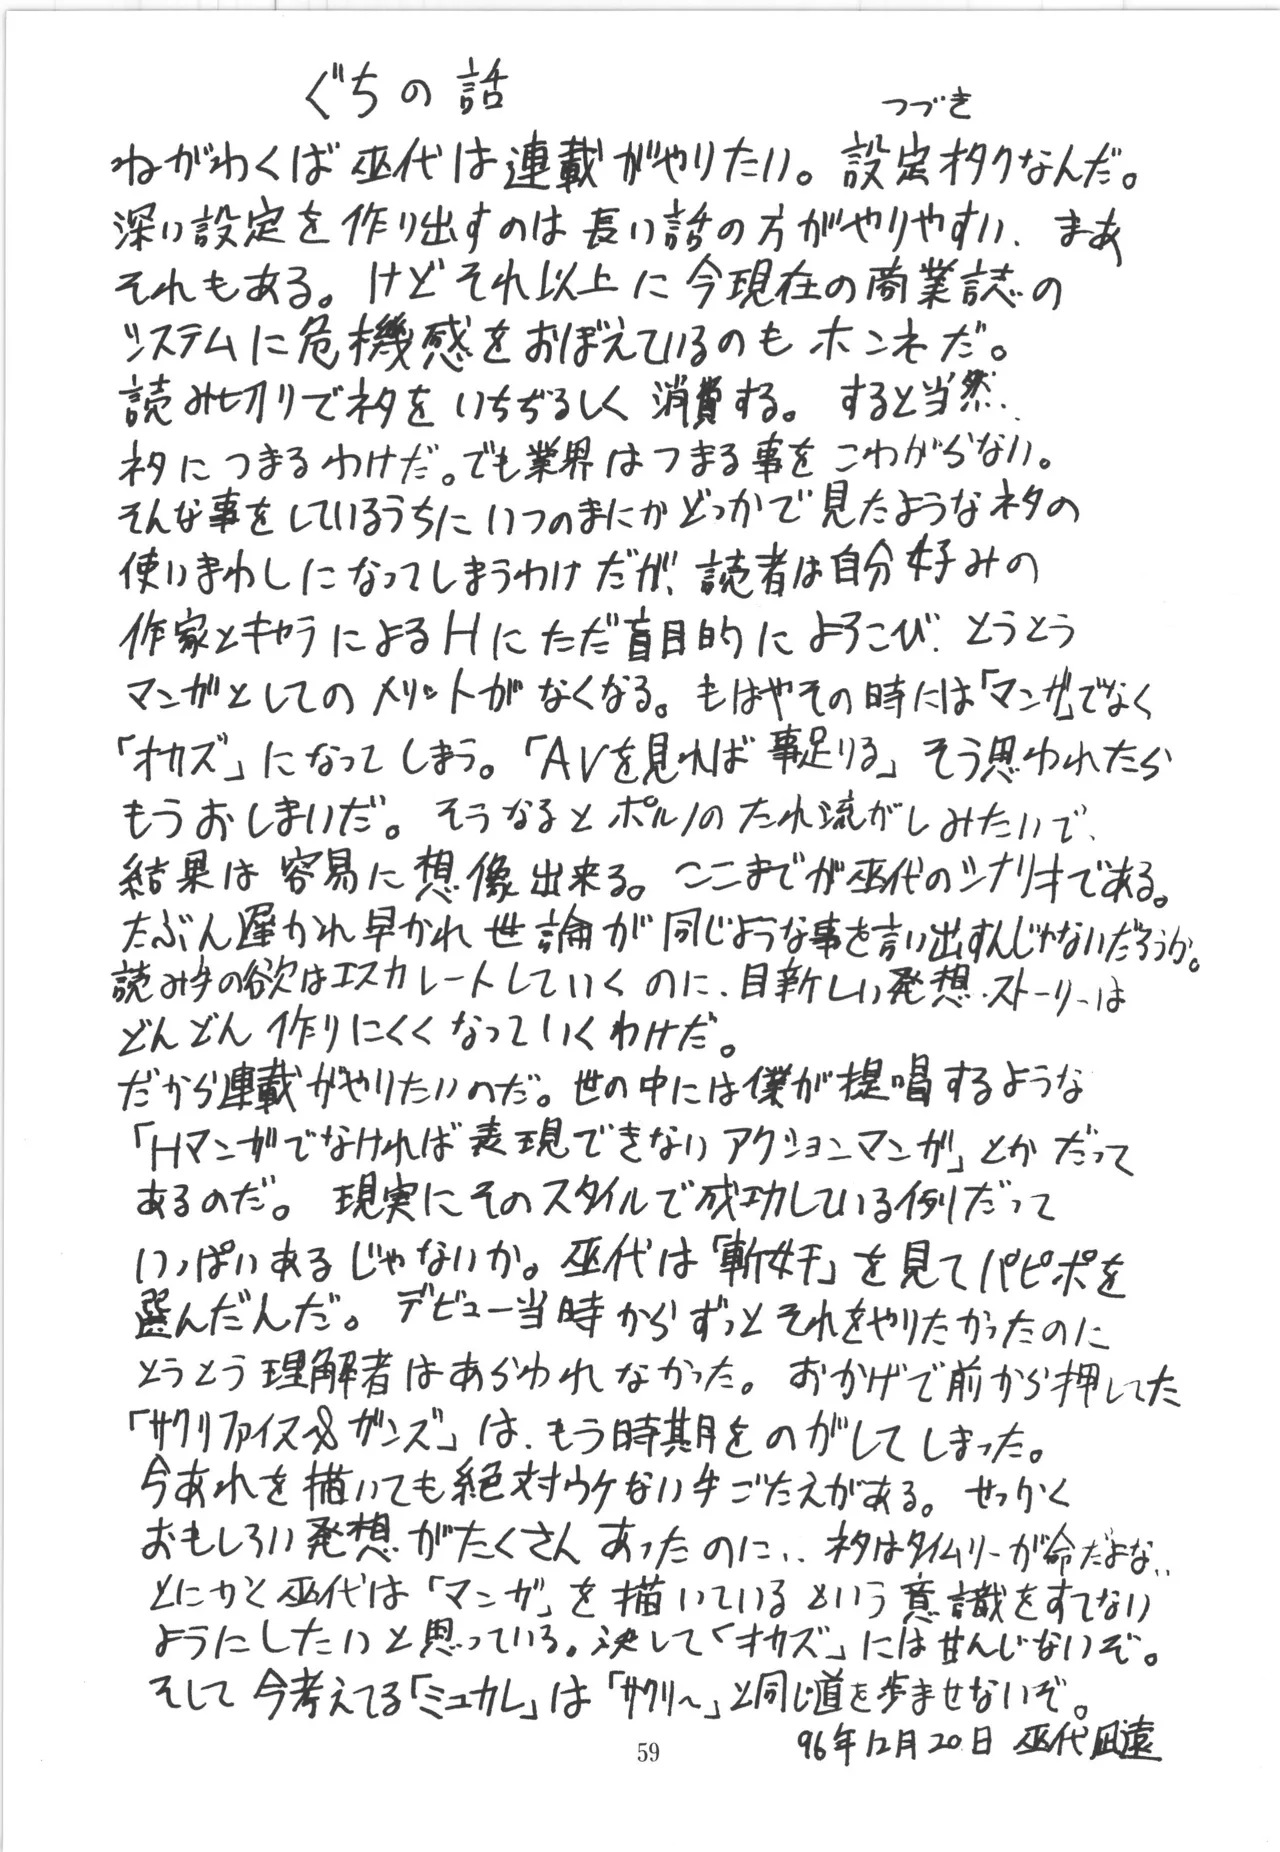 ぐちの話
つづき
ねがわくば巫代は連載がやりたい。設定オタクなんだ。
深い設定を作り出すのは長い話の方がやりやすい、まあ
それもある。けどそれ以上に今現在の商業誌の
システムに危機感をおぼえているのもホンネだ。
読み切りでネタをいちぢるしく消費する。すると当然、
ネタにつまるわけだ。でも業界はつまる事をこわがらない。
そんな事をしているうちにいつのまにかどっかで見たようなネタの
使いまわしになってしまうわけだが、読者は自分好みの
作家とキャラによるHにただ盲目的によろこび、とうとう
マンガとしてのメリットがなくなる。もはやその時には「マンガ」でなく
「オカズ」になってしまう。「AVを見れば事足りる」そう思われたら
もうおしまいだ。そうなるとポルノのたれ流がしみたいで、
結果は容易に想像出来る。ここまでが巫代のシナリオである。
たぶん遅かれ早かれ世論が同じような事を言い出すんじゃないだろうか。
読み手の欲はエスカレートしていくのに、目新しい発想・ストーリーは
どんどん作りにくくなっていくわけだ。
だから連載がやりたいのだ。世の中には僕が提唱するような
「Hマンガでなければ表現できないアクションマンガ」とかだって
あるのだ。現実にそのスタイルで成功している例だって
いっぱいあるじゃないか。巫代は「斬奸」を見てパピポを
選んだんだ。デビュー当時からずっとそれをやりたかったのに
とうとう理解者はあらわれなかった。おかげで前から押してた
「サクリファイス&ガンズ」は、もう時期をのがしてしまった。
今あれを描いても絶対ウケない手ごたえがある。せっかく
おもしろい発想がたくさんあったのに、、ネタはタイムリーが命だよな、、
とにかく巫代は「マンガ」を描いているという意識をすてない
ようにしたいと思っている。決して「オカズ」には甘んじないぞ。
そして今考えてる「ミュカレ」は「サクリ〜」と同じ道を歩ませないぞ。
96年12月20日 巫代凪遠
59